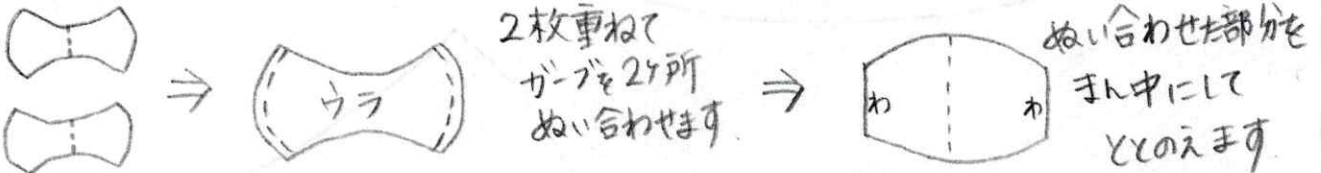 ウラ
2枚重ねて
ガーブを2ヶ所
ぬい合わせます
わ
わ
ぬい合わせた部分を
まん中にして
ととのえます